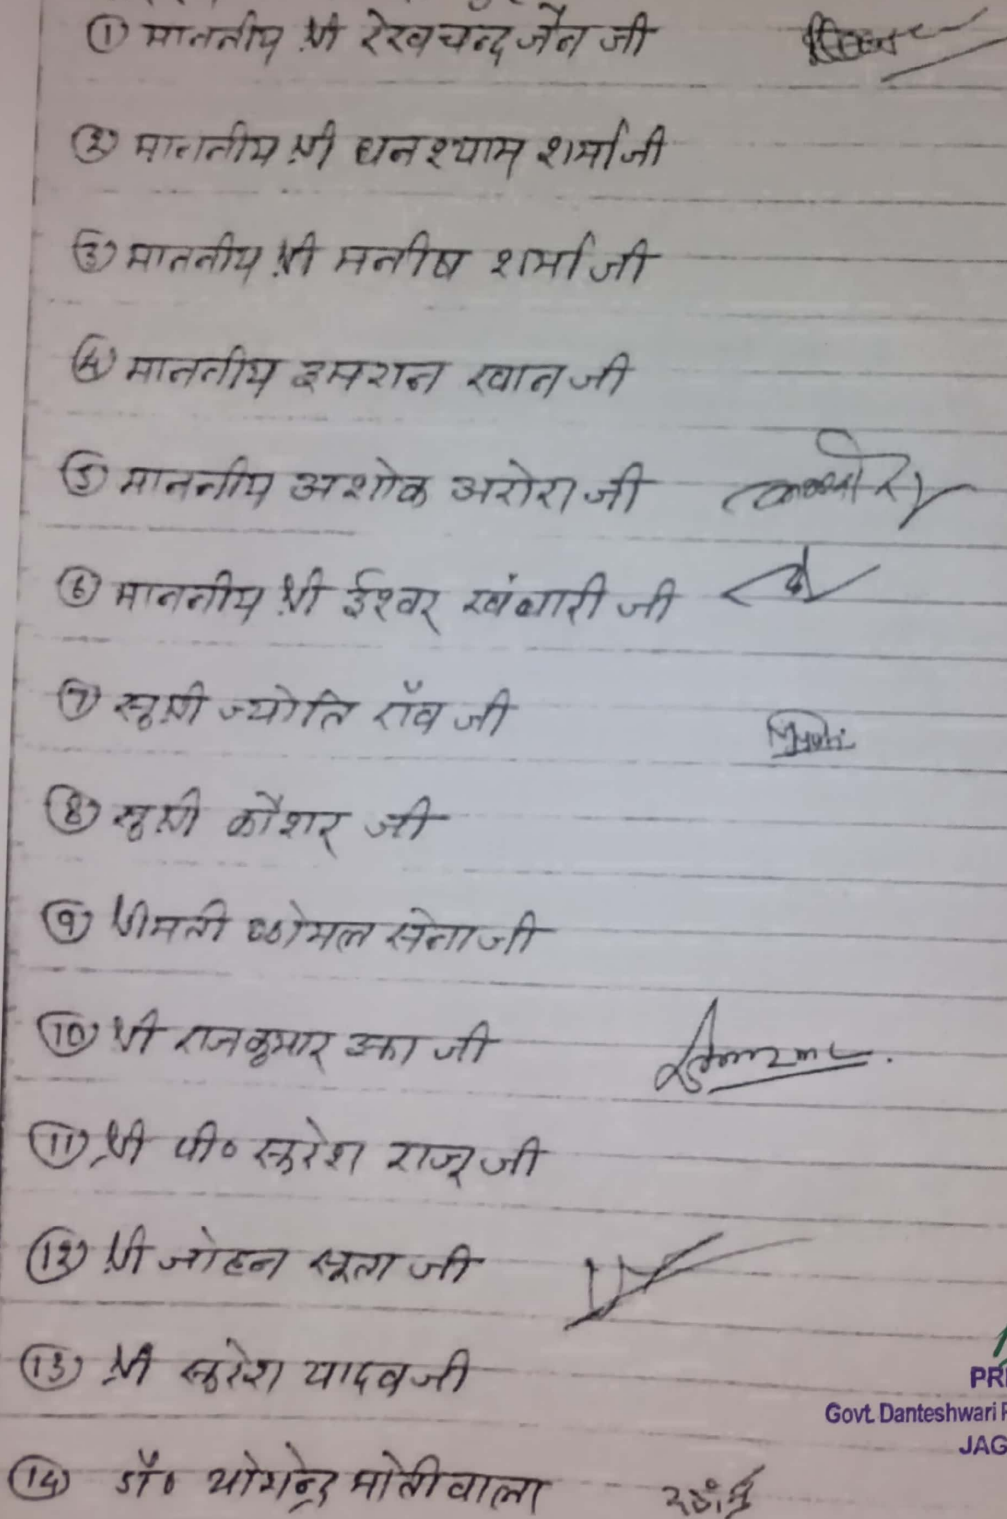 ① माननीय श्री रेखचन्द जैन जी
② माननीय श्री घनश्याम शर्मा जी
③ माननीय श्री मनीष शर्मा जी
④ माननीय इमरान खान जी
⑤ माननीय अशोक अरोरा जी
⑥ माननीय श्री ईश्वर खंबारी जी
⑦ सुश्री ज्योति रॉव जी
⑧ सुश्री कौशर जी
⑨ श्रीमती कोमल सेना जी
⑩ श्री राजकुमार झा जी
⑪ श्री पी० सुरेश राजू जी
⑫ श्री जोहन सूता जी
⑬ श्री सुरेश यादव जी
PRI
Govt. Danteshwari P
JAG
⑭ डॉ० योगेन्द्र मोतीवाला